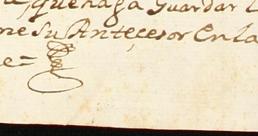 que haga Guardar l
ne su Antecesor En la
e=